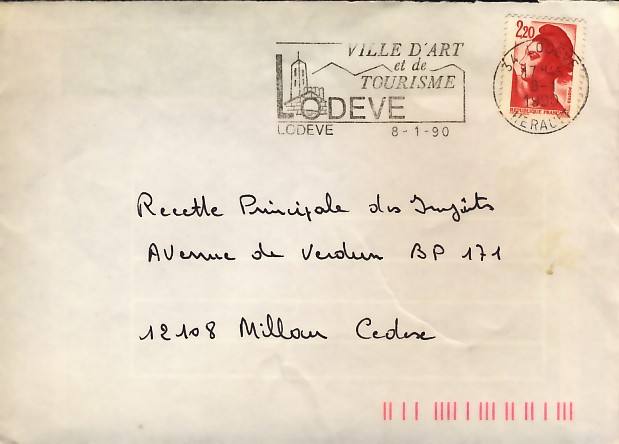 VILLE D'ART
et de
TOURISME
LODEVE
LODEVE 8-1-90
2,20
REPUBLIQUE FRANÇAISE
34 LODEVE
17H
8-1
1990
HERAULT
Recette Principale des Impôts
Avenue de Verdun BP 171
12108 Millau Cedex